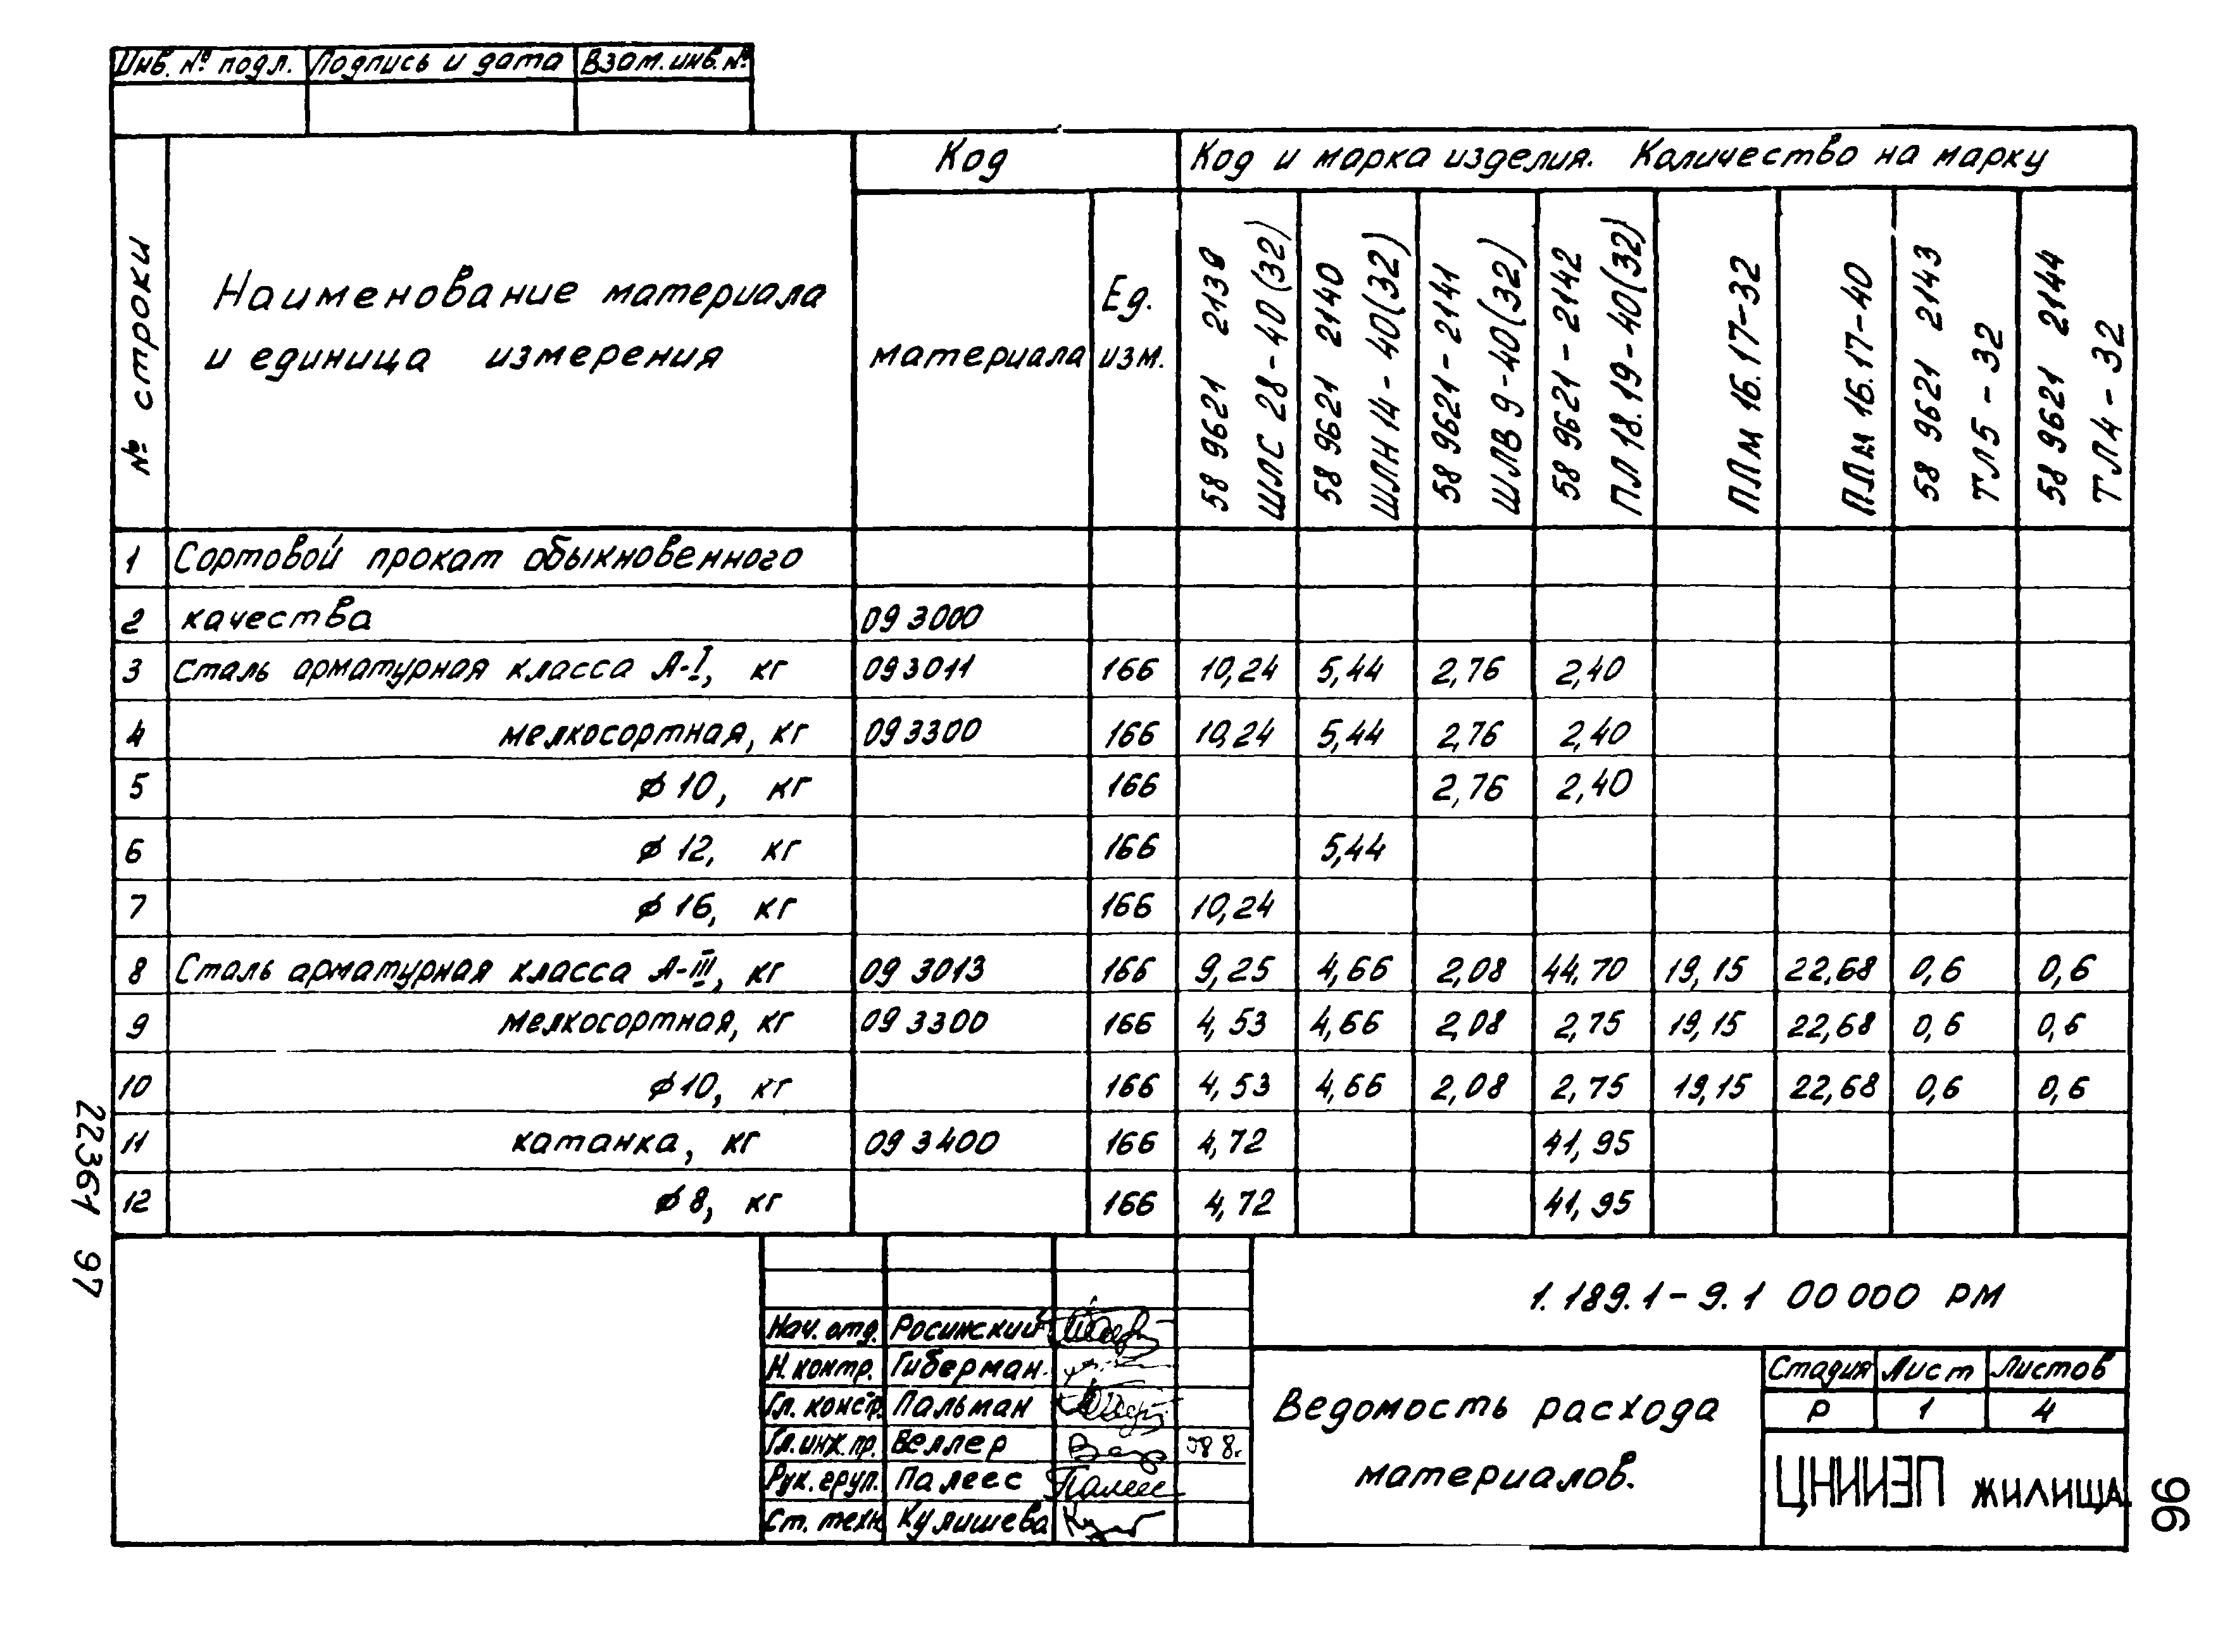 Инв. № подл. Подпись и дата Взам. инв. №
№ строки Наименование материала и единица измерения Код Код и марка изделия. Количество на марку
материала Ед. изм.
58 9621 2139 ШЛС 28-40(32)
58 9621 2140 ШЛН 14-40(32)
58 9621-2141 ШЛВ 9-40(32)
58 9621-2142 ПЛ 18.19-40(32)
ПЛм 16.17-32
ПЛм 16.17-40
58 9621 2143 ТЛ5-32
58 9621 2144 ТЛ4-32
1 Сортовой прокат обыкновенного
2 качества 09 3000
3 Сталь арматурная класса А-I, кг 093011 166 10,24 5,44 2,76 2,40
4 мелкосортная, кг 093300 166 10,24 5,44 2,76 2,40
5 ϕ10, кг 166 2,76 2,40
6 ϕ12, кг 166 5,44
7 ϕ16, кг 166 10,24
8 Сталь арматурная класса А-III, кг 09 3013 166 9,25 4,66 2,08 44,70 19,15 22,68 0,6 0,6
9 мелкосортная, кг 09 3300 166 4,53 4,66 2,08 2,75 19,15 22,68 0,6 0,6
10 ϕ10, кг 166 4,53 4,66 2,08 2,75 19,15 22,68 0,6 0,6
11 катанка, кг 09 3400 166 4,72 41,95
12 ϕ8, кг 166 4,72 41,95
22361 97
1.189.1-9.1 00 000 РМ
Нач. отд. Росинский
Н. контр. Гиберман
Гл. констр. Пальман
Гл. инж. пр. Веллер
Рук. груп. Палеес Палеес
Ст. техн. Кулишева
Ведомость расхода
материалов.
Стадия Лист Листов
Р 1 4
ЦНИИЭП жилища
96